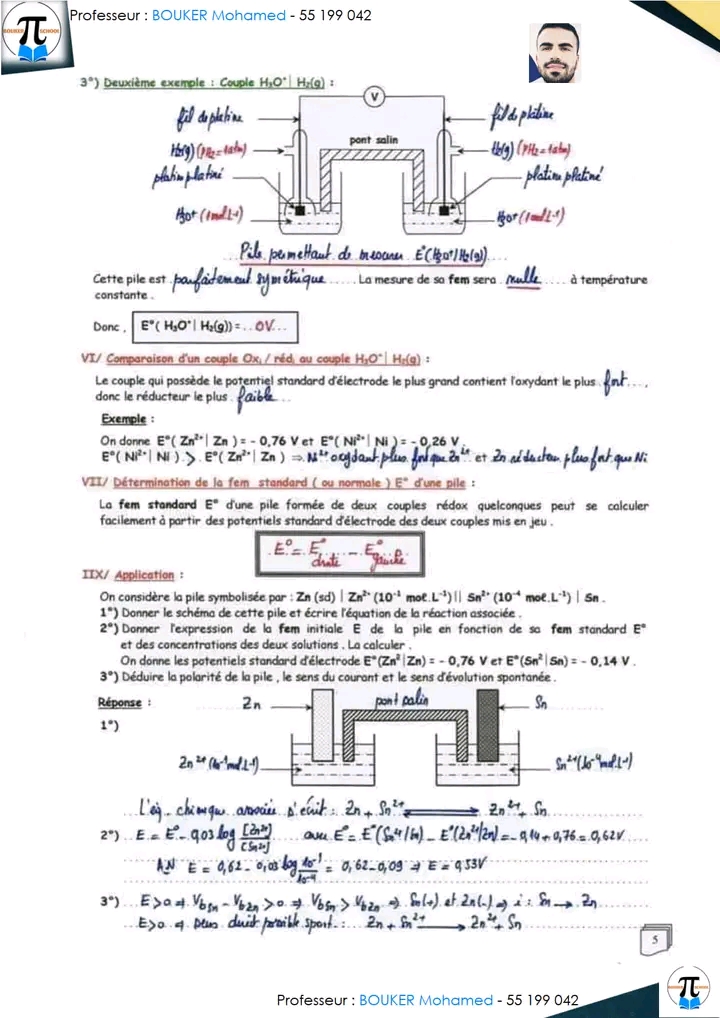 Professeur : BOUKER Mohamed - 55 199 042
BOUKER SCHOOL
3°) Deuxième exemple : Couple H₃O⁺| H₂(g) :
V
fil de platine
fil de platine
pont salin
H₂(g) (PH₂ = 1 atm)
H₂(g) (PH₂ = 1 atm)
platine platiné
platine platiné
H₃O⁺ (1 mol L⁻¹)
H₃O⁺ (1 mol L⁻¹)
Pile permettant de mesurer E°(H₃O⁺/H₂(g))
Cette pile est parfaitement symétrique ..... La mesure de sa fem sera nulle .... à température
constante .
Donc , E°( H₃O⁺| H₂(g)) = ..0V...
VI/ Comparaison d'un couple Ox₁ / réd₁ au couple H₃O⁺| H₂(g) :
Le couple qui possède le potentiel standard d'électrode le plus grand contient l'oxydant le plus fort ...,
donc le réducteur le plus faible ...
Exemple :
On donne E°( Zn²⁺| Zn ) = - 0,76 V et E°( Ni²⁺| Ni ) = - 0,26 V .
E°( Ni²⁺| Ni ) > E°( Zn²⁺| Zn ) ⇒ Ni²⁺ oxydant plus fort que Zn²⁺ et Zn réducteur plus fort que Ni
VII/ Détermination de la fem standard ( ou normale ) E° d'une pile :
La fem standard E° d'une pile formée de deux couples rédox quelconques peut se calculer
facilement à partir des potentiels standard d'électrode des deux couples mis en jeu .
E° = E°droite - E°gauche
IIX/ Application :
On considère la pile symbolisée par : Zn (sd) | Zn²⁺ (10⁻¹ moℓ.L⁻¹) || Sn²⁺ (10⁻⁴ moℓ.L⁻¹) | Sn .
1°) Donner le schéma de cette pile et écrire l'équation de la réaction associée .
2°) Donner l'expression de la fem initiale E de la pile en fonction de sa fem standard E°
et des concentrations des deux solutions . La calculer .
On donne les potentiels standard d'électrode E°(Zn²⁺|Zn) = - 0,76 V et E°(Sn²⁺|Sn) = - 0,14 V .
3°) Déduire la polarité de la pile , le sens du courant et le sens d'évolution spontanée .
Réponse :
Zn
pont salin
Sn
1°)
Zn²⁺ (10⁻¹ mol.L⁻¹)
Sn²⁺ (10⁻⁴ mol.L⁻¹)
L'éq. chimique associée s'écrit : Zn + Sn²⁺ ⇌ Zn²⁺ + Sn
2°) E = E° - 0,03 log [Zn²⁺]/[Sn²⁺] avec E° = E°(Sn²⁺/Sn) - E°(Zn²⁺/Zn) = - 0,14 + 0,76 = 0,62V
A.N E = 0,62 - 0,03 log 10⁻¹/10⁻⁴ = 0,62 - 0,09 ⇒ E = 0,53V
3°) E>0 ⇒ VbSn - VbZn > 0 ⇒ VbSn > VbZn ⇒ Sn(+) et Zn(-) ⇒ i : Sn → Zn
E>0 ⇒ sens direct possible spont. : Zn + Sn²⁺ → Zn²⁺ + Sn
5
Professeur : BOUKER Mohamed - 55 199 042
BOUKER SCHOOL